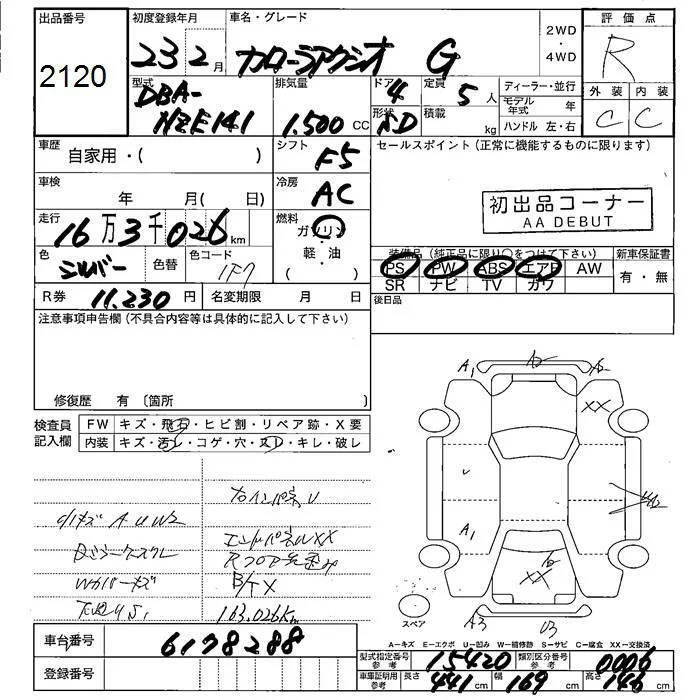 出品番号
2120
初度登録年月
23 2月
車名・グレード
カローラアクシオ G
2WD
・
4WD
評価点
R
外装 内装
C C
型式
DBA-
NZE141
排気量
1.500 CC
ドア
4
形状
SD
定員
5人
積載
kg
ディーラー・並行
モデル年式 年
ハンドル 左・右
車歴
自家用・( )
シフト
F5
セールスポイント (正常に機能するものに限ります)
初出品コーナー
AA DEBUT
車検
年 月( 日)
冷房
AC
走行
16万3千026km
燃料
ガソリン
・
軽・油
( )
色
シルバー
色替
色コード
1F7
装備品(純正品に限り○をつけて下さい)
PS PW ABS エアB AW
SR ナビ TV カワ
新車保証書
有・無
R券 11.230円
名変期限 月 日
後日品
注意事項申告欄(不具合内容等は具体的に記入して下さい)
修復歴 有 〔箇所 〕
検査員記入欄
FW キズ・飛石・ヒビ割・リペア跡・X要
内装 キズ・汚レ・コゲ・穴・スレ・キレ・破レ
右インパネU
小キズ A U W2
エンドパネルWXX
Rフロア歪み
Wカバーキズ
B/TX
163.026Km
A1
A2
A2
XX
A1
XX
A3
U3
スペア
A−キズ E−エクボ U−凹み W−補修跡 S−サビ C−腐食 XX−交換済
車台番号 6178288
登録番号
型式指定番号参考 15420
類別区分番号参考 0006
車庫証明用参考 長さ 441cm 幅 169cm 高さ 146cm